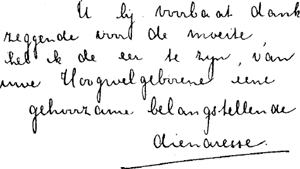 U bij voorbaat dank
zeggende voor de moeite
heb ik de eer te zijn, van
uwe Hoogwelgeborene eene
gehoorzame belangstellende
dienaresse.